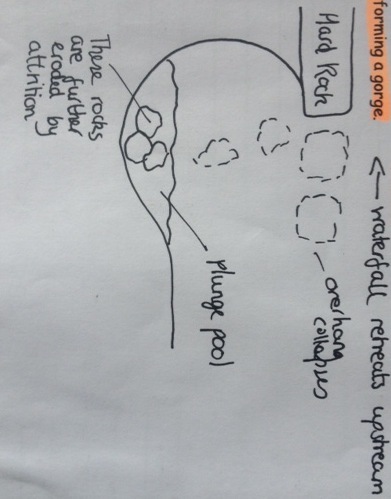 forming a gorge.
← waterfall retreats upstream
Hard Rock
overhang
collapses
plunge pool
These rocks
are further
eroded by
attrition